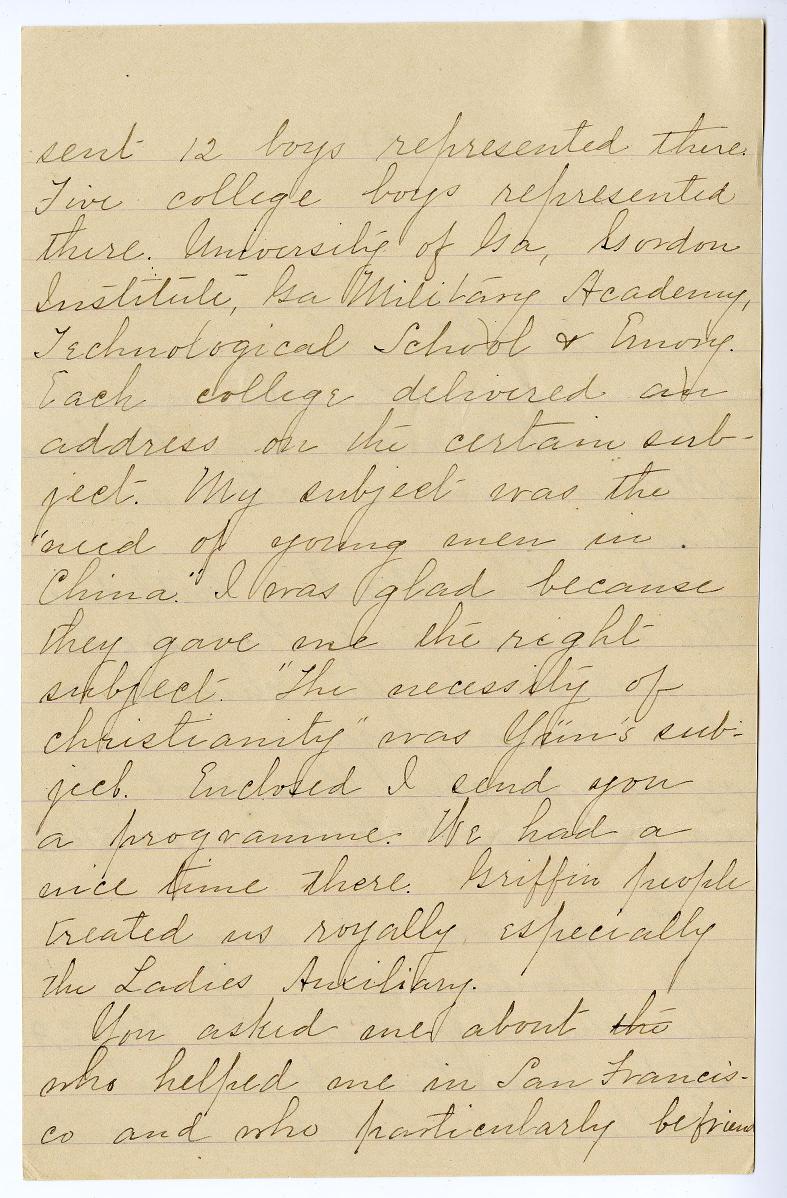 sent 12 boys represented there.
Five college boys represented
there. University of Ga, Gordon
Institute, Ga Military Academy,
Technological School & Emory.
Each college delivered an
address on the certain sub-
ject. My subject was the
"need of young men in
China." I was glad because
they gave me the right
subject. "The necessity of
christianity" was Yün's sub-
ject. Enclosed I send you
a programme. We had a
nice time there. Griffin people
treated us royally, especially
the Ladies Auxiliary.
You asked me about the
who helped me in San Francis-
co and who particularly befriend